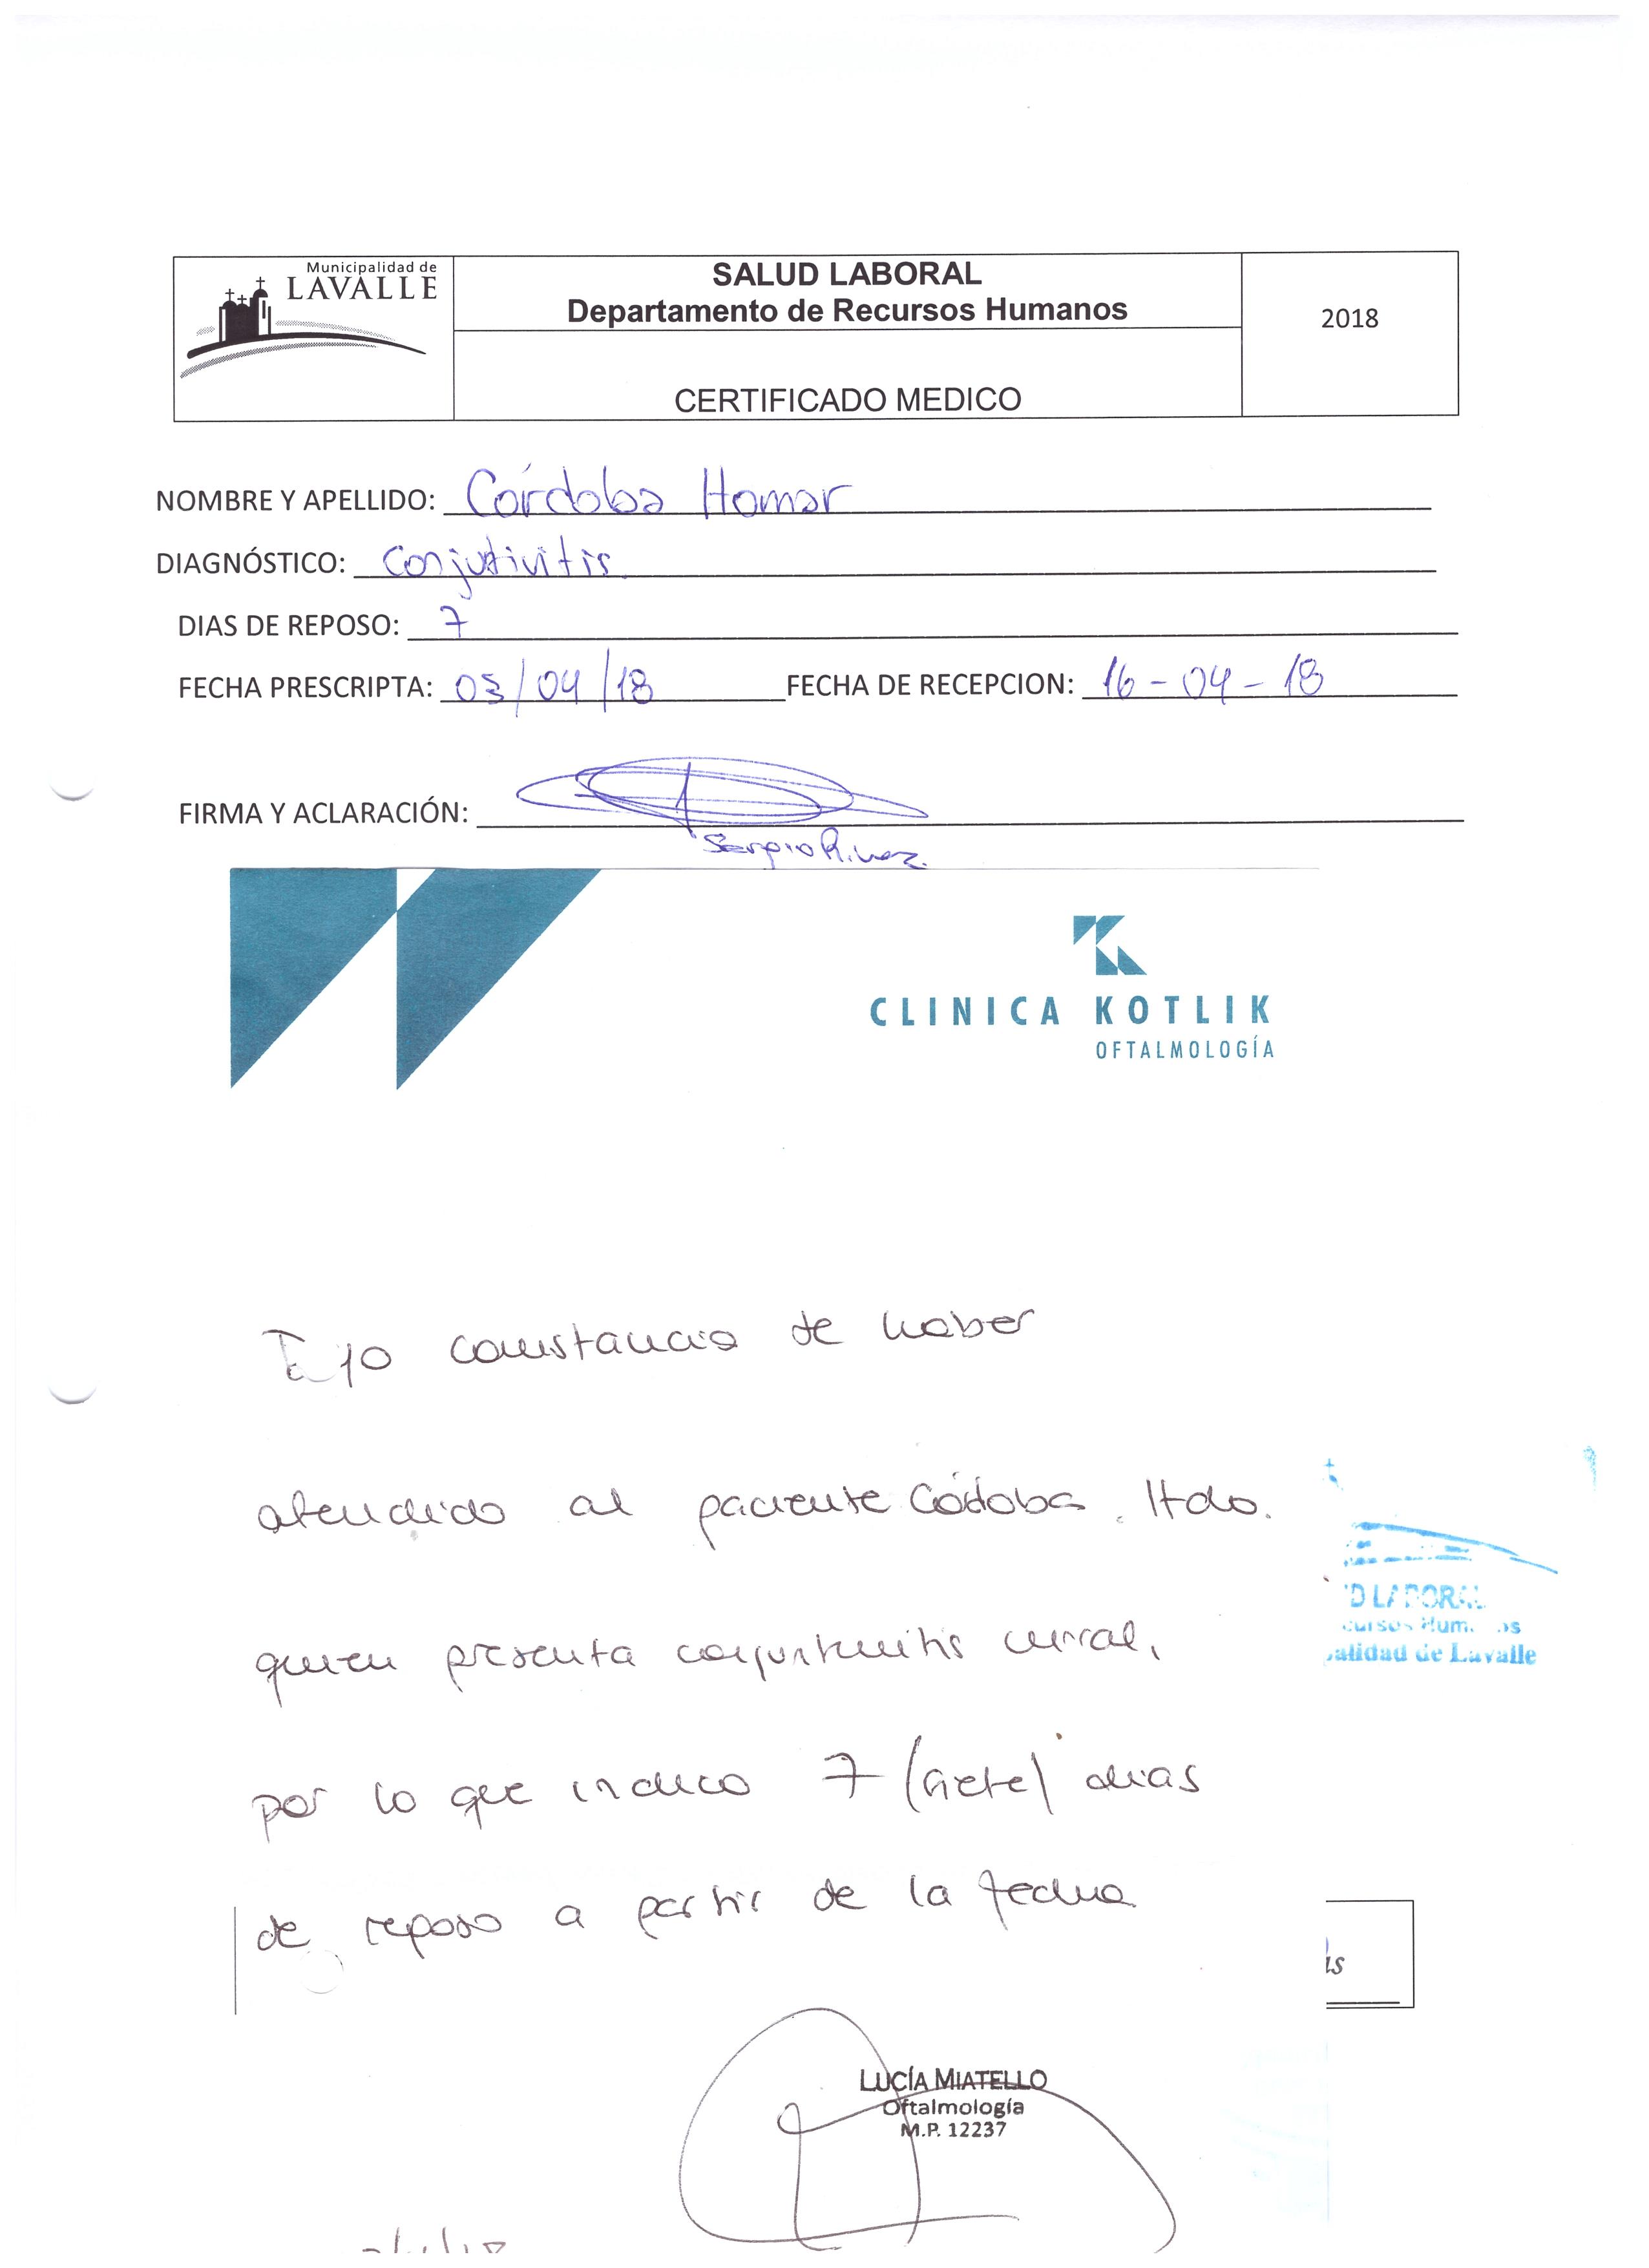 Municipalidad de
LAVALLE
SALUD LABORAL
Departamento de Recursos Humanos
CERTIFICADO MEDICO
2018
NOMBRE Y APELLIDO: Córdoba Homar
DIAGNÓSTICO: Conjutivitis
DIAS DE REPOSO: 7
FECHA PRESCRIPTA: 03/04/18 FECHA DE RECEPCION: 16-04-18
FIRMA Y ACLARACIÓN:
Sergio
CLINICA KOTLIK
OFTALMOLOGÍA
constancia de haber
atendido al paciente Córdoba
quien presenta conjuntivitis viral,
por lo que indico 7 (siete) dias
de reposo a partir de la fecha
D LABORAL
cursos Humanos
alidad de Lavalle
is
LUCÍA MIATELLO
Oftalmología
M.P. 12237